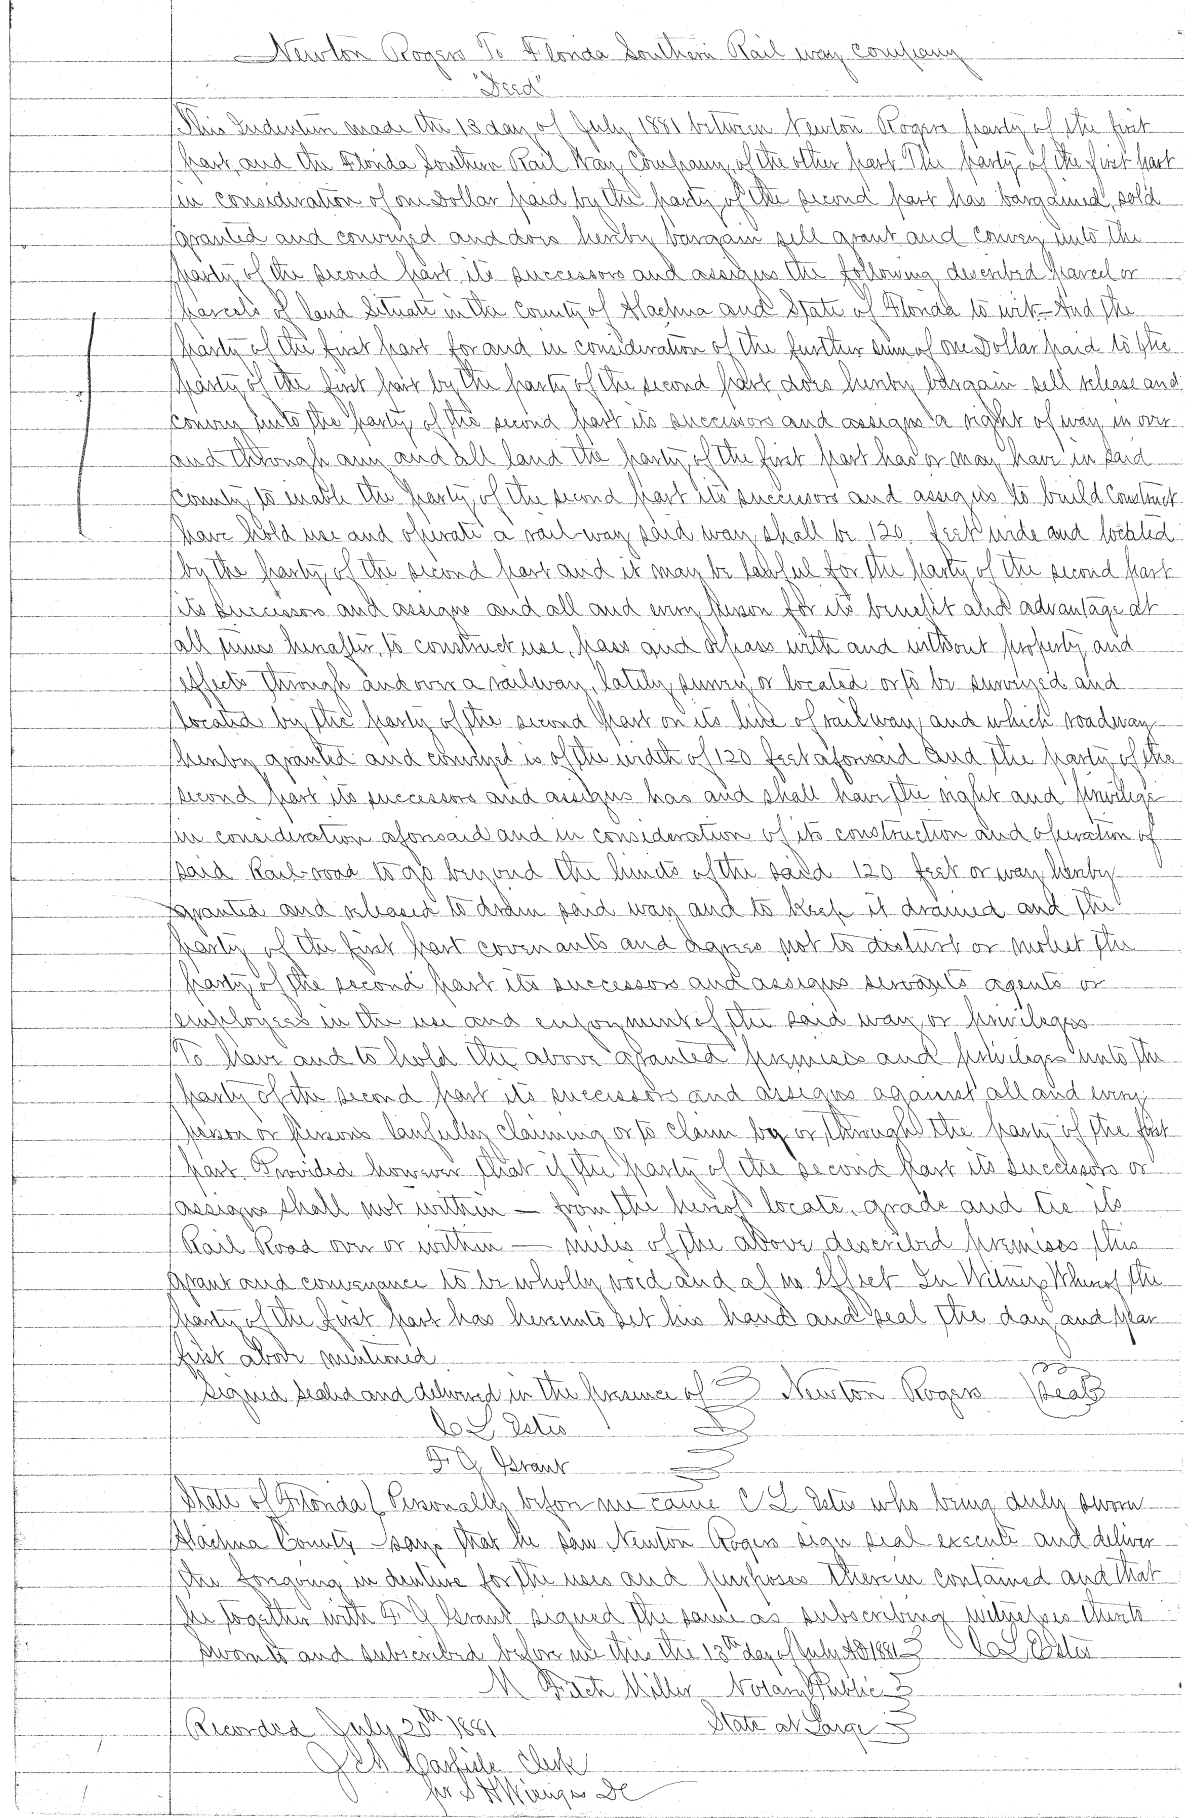 Newton Rogers To Florida Southern Rail way company
"Deed"
This Indenture made the 13 day of July 1881 between Newton Rogers party of the first
part, and the Florida Southern Rail Way Company, of the other part The party of the first part
in consideration of one Dollar paid by the party of the second part has bargained, sold
granted and conveyed and does hereby bargain sell grant and convey unto the
party of the second part its successors and assigns the following described parcel or
parcels of land Situate in the County of Alachua and State of Florida to wit - And the
party of the first part for and in consideration of the further sum of one Dollar paid to the
party of the first part by the party of the second part, does hereby bargain sell release and
convey unto the party of the second part its successors and assigns a right of way in over
and through any and all land the party of the first part has or may have in said
County to enable the party of the second part its successors and assigns to build construct
have hold use and operate a rail-way said way shall be 120 feet wide and located
by the party of the second part and it may be lawful for the party of the second part
its successors and assigns and all and every person for its benefit and advantage at
all times hereafter, to construct use, pass and repass with and without property and
effects through and over a railway, lately survey or located or to be surveyed and
located by the party of the second part on its line of railway and which roadway
hereby granted and conveyed is of the width of 120 feet aforesaid And the party of the
second part its successors and assigns has and shall have the right and privilege
in consideration aforesaid and in consideration of its construction and operation of
said Rail-road to go beyond the limits of the said 120 feet or way hereby
granted and released to drain said way and to keep it drained and the
party of the first part covenants and agrees not to disturb or molest the
party of the second part its successors and assigns servants agents or
employees in the use and enjoyment of the said way or privileges
To have and to hold the above granted premises and privileges unto the
party of the second part its successors and assigns against all and every
person or persons lawfully claiming or to claim by or through the party of the first
part. Provided however that if the party of the second part its successors or
assigns shall not within — from the hereof locate, grade and tie its
Rail Road over or within — miles of the above described premises this
grant and conveyance to be wholly void and of no effect In Witness Whereof the
party of the first part has hereunto set his hand and seal the day and year
first above mentioned
Signed sealed and delivered in the presence of Newton Rogers (Seal)
C L Estes
F G Grant
State of Florida ( Personally before me came C L Estes who being duly sworn
Alachua County says that he saw Newton Rogers sign seal execute and deliver
the foregoing indenture for the uses and purposes therein contained and that
he together with F G Grant signed the same as subscribing witnesses thereto
Sworn to and subscribed before me this the 13th day of July AD 1881 C L Estes
M Fitch Miller Notary Public
Recorded July 20th 1881 State at Large
J A Carlisle Clerk
pr S H Wienges DC